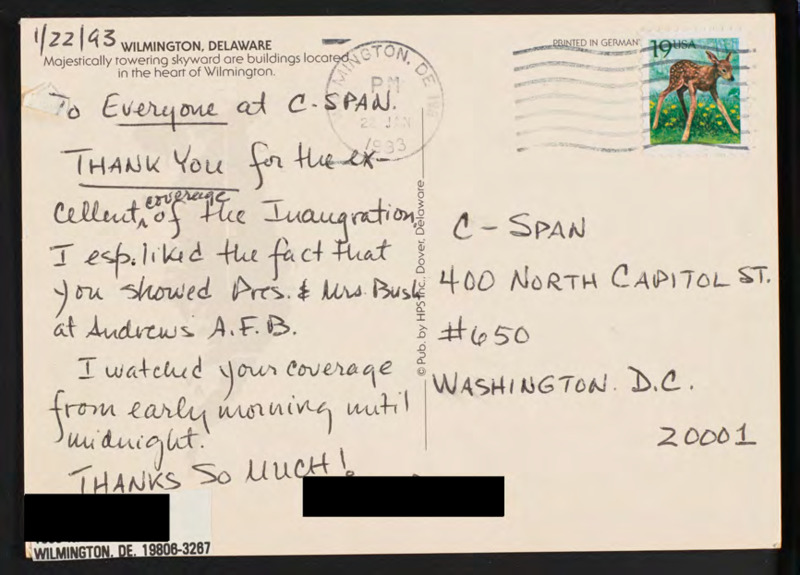 1/22/93
WILMINGTON, DELAWARE
Majestically towering skyward are buildings located
in the heart of Wilmington.
To Everyone at C-SPAN.
THANK YOU for the ex-
cellent coverage of the Inaugration.
I esp. liked the fact that
you showed Pres. & Mrs. Bush
at Andrews A.F.B.
I watched your coverage
from early morning until
midnight.
THANKS SO MUCH!
WILMINGTON, DE. 19806-3267
© Pub. by HPS Inc., Dover, Delaware
WILMINGTON, DE
PM
JAN
1993
PRINTED IN GERMAN
19 USA
C-SPAN
400 NORTH CAPITOL ST.
#650
WASHINGTON. D.C.
20001